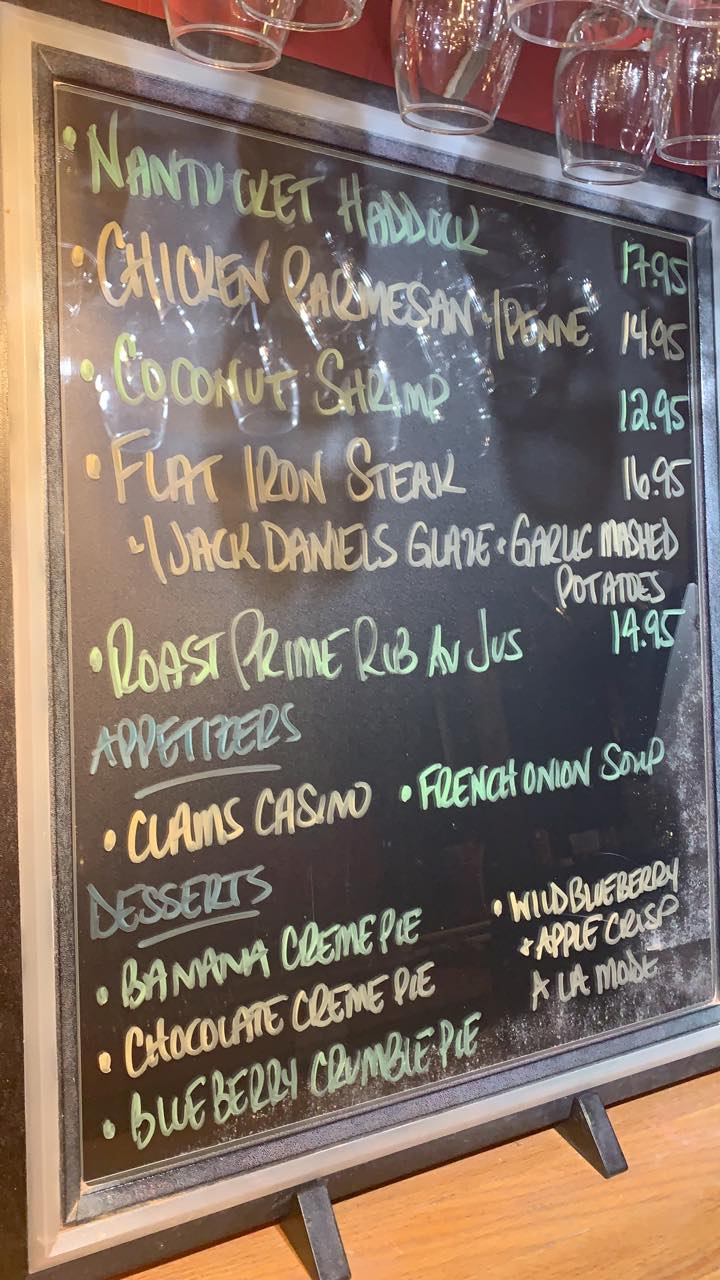 • NANTUCKET HADDOCK 17.95
• CHICKEN PARMESAN W/PENNE 14.95
• COCONUT SHRIMP 12.95
• FLAT IRON STEAK 16.95
W/JACK DANIELS GLAZE • GARLIC MASHED
POTATOES
• ROAST PRIME RIB AU JUS 14.95
APPETIZERS
• CLAMS CASINO • FRENCH ONION SOUP
DESSERTS
• BANANA CREME PIE
• CHOCOLATE CREME PIE
• BLUEBERRY CRUMBLE PIE
• WILD BLUEBERRY
+ APPLE CRISP
A LA MODE